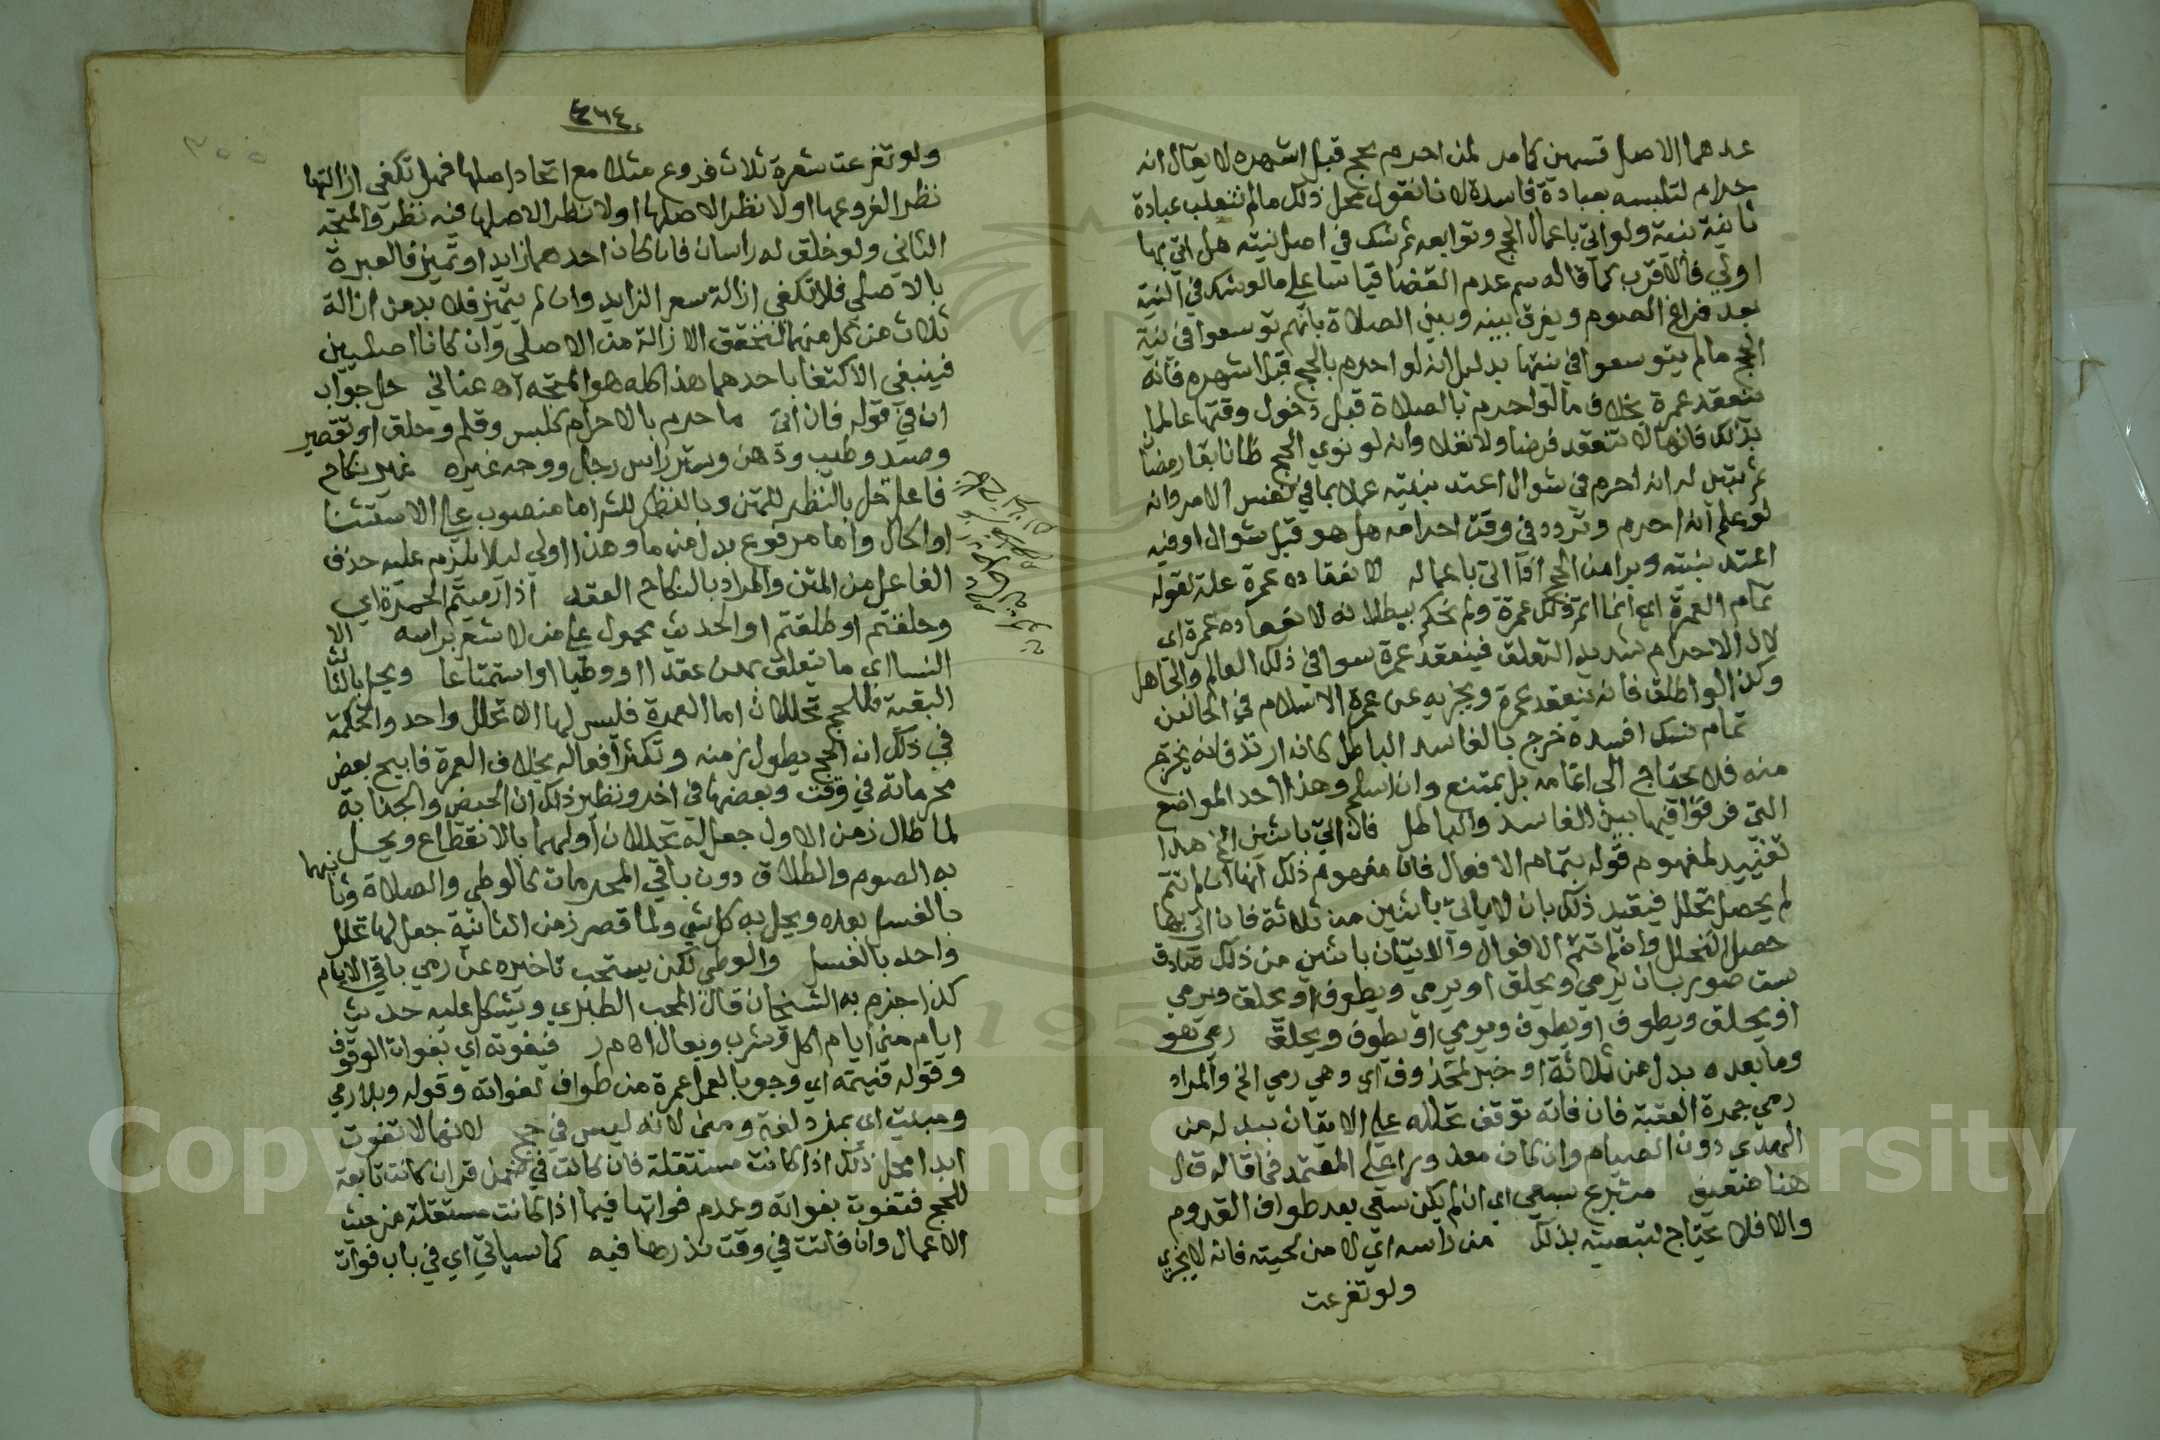 عدهما الاصل قسمين كما مر لمن احرم بحج قبل اشهره لا يقال انه
حرام لتلبسه بعبادة فاسدة لانا نقول محل ذلك ما لم تنقلب عبادة
ثانية بنية ولو اتى باعمال الحج وتوابعه ثم شك في اصل نيته هل اتى بها
اولي فالاقرب كما قاله سم عدم القضا قياسا على ما لو شك في النية
بعد فراغ الصوم ويفرق بينه وبين الصلاة بانهم توسعوا في نية
الحج ما لم يتوسعوا في نيتها بدليل انه لو احرم بالحج قبل اشهره فانه
ينعقد عمرة بخلاف ما لو احرم بالصلاة قبل دخول وقتها عالما
بذلك فانها لا تنعقد فرضا ولا نفلا وانه لو نوي الحج ظانا بقا رمضان
ثم تبين له انه احرم في شوال اعتد بنيته عملا بما في نفس الامر وانه
لو علم انه احرم وتردد في وقت احرامه هل هو قبل شوال او فيه
اعتد بنيته وبرا من الحج اذا اتى باعماله لانعقاده عمرة علة لقوله
تمام العمرة اي انما اتم ذلك عمرة ولم نحكم ببطلانه لانعقاده عمرة اي
لان الاحرام شديد التعلق فينعقد عمرة سوا في ذلك العالم والجاهل
وكذا لو اطلق فانه ينعقد عمرة ويجزيه عن عمرة الاسلام في الحالين
تمام نسك افسده خرج بالفاسد الباطل كان ارتد فانه يخرج
منه فلا يحتاج الى اتمامه بل يمتنع وان اسلم وهذا احد المواضع
التي فرقوا فيها بين الفاسد والباطل فان اتي باثنين الخ هذا
تقييد لمفهوم قوله بتمام الافعال فان مفهوم ذلك انها ان لم تتم
لم يحصل تحلل فيقيد ذلك بان لا ياتي باثنين من ثلاثة فان اتي بهما
حصل التحلل وان لم تتم الافعال والاتيان باثنين من ذلك صادق
ست صور بان يرمي ويحلق او يرمي ويطوف او يحلق ويرمي
او يحلق ويطوف او يطوف ويرمي او يطوف ويحلق رمي هو
وما بعده بدل من ثلاثة او خبر لمحذوف اي وهي رمي الخ والمراد
رمي جمرة العقبة فان فاته توقف تحلله على الاتيان ببدله من
الهدي دون الصيام وان كان معذورا على المعتمد فما قاله ق ل
هنا ضعيف متبع سعي اي ان لم يكن سعي بعد طواف القدوم
والا فلا يحتاج لتبعيته بذلك من راسه اي لا من لحيته فانه لا يجزي
ولو تفرعت
٤٦٤
ولو تفرعت شعرة ثلاث فروع مثلا مع اتحاد اصلها فهل تكفي ازالتها
نظرا لفروعها او لا نظرا لاصلها او لا نظرا لاصلها فيه نظر والمتجه
الثاني ولو خلق له راسان فان كان احدهما زايدا وتميز فالعبرة
بالاصلي فلا تكفي ازالة شعر الزايد وان لم يتميز فلا بد من ازالة
ثلاث من كل منهما لتتحقق الازالة من الاصلي وان كانا اصليين
فينبغي الاكتفا باحدهما هذا كله هو المتجه اه عناني حل جواب
ان في قوله فان اتى ما حرم بالاحرام كلبس وقلم وحلق او تقصير
وصيد وطيب ودهن وستر راس رجل ووجه غيره غير نكاح
فاعل حل بالنظر للمتن وبالنظر للشر اما منصوب على الاستثنا
او الحال واما مرفوع بدل من ما وهذا اولي ليلا يلزم عليه حذف
الفاعل من المتن والمراد بالنكاح العقد اذا رميتم الجمرة اي
وحلقتم او طلقتم او الحديث محمول على من لا شعر براسه الا
النسا اي ما يتعلق بهن عقدا او وطيا او استمتاعا ويحل بالثالث
البقية فللحج تحللان اما العمرة فليس لها الا تحلل واحد والحكمة
في ذلك ان الحج يطول زمنه وتكثر افعاله بخلاف العمرة فابيح بعض
محرماته في وقت وبعضها في اخر ونظير ذلك ان الحيض والجنابة
لما طال زمن الاول جعل له تحللان اولهما بالانقطاع ويحل
به الصوم والطلاق دون باقي المحرمات كالوطي والصلاة وثانيهما
بالغسل بعده ويحل به كل شي ولما قصر زمن الثانية جعل لها تحلل
واحد بالغسل والوطي لكن يستحب تاخيره عن رمي باقي الايام
كذا جزم به الشيخان قال المحب الطبري ويشكل عليه حديث
ايام منى ايام اكل وشرب وبعال اه م ر فيفوته اي بفوات الوقوف
وقوله فنيته اي وجوبا بعمل عمرة من طواف لفواته وقوله وبلا رمي
ومبيت اي بمزدلفة ومنى لانه ليس في حج لانها لا تفوت
ابدا محل ذلك اذا كانت مستقلة فان كانت في ضمن قران كانت تابعة
للحج فتفوت بفواته وعدم فواتها فيما اذا كانت مستقلة من حيث
الاعمال وان فاتت في وقت نذرها فيه كما سياتي اي في باب فوات